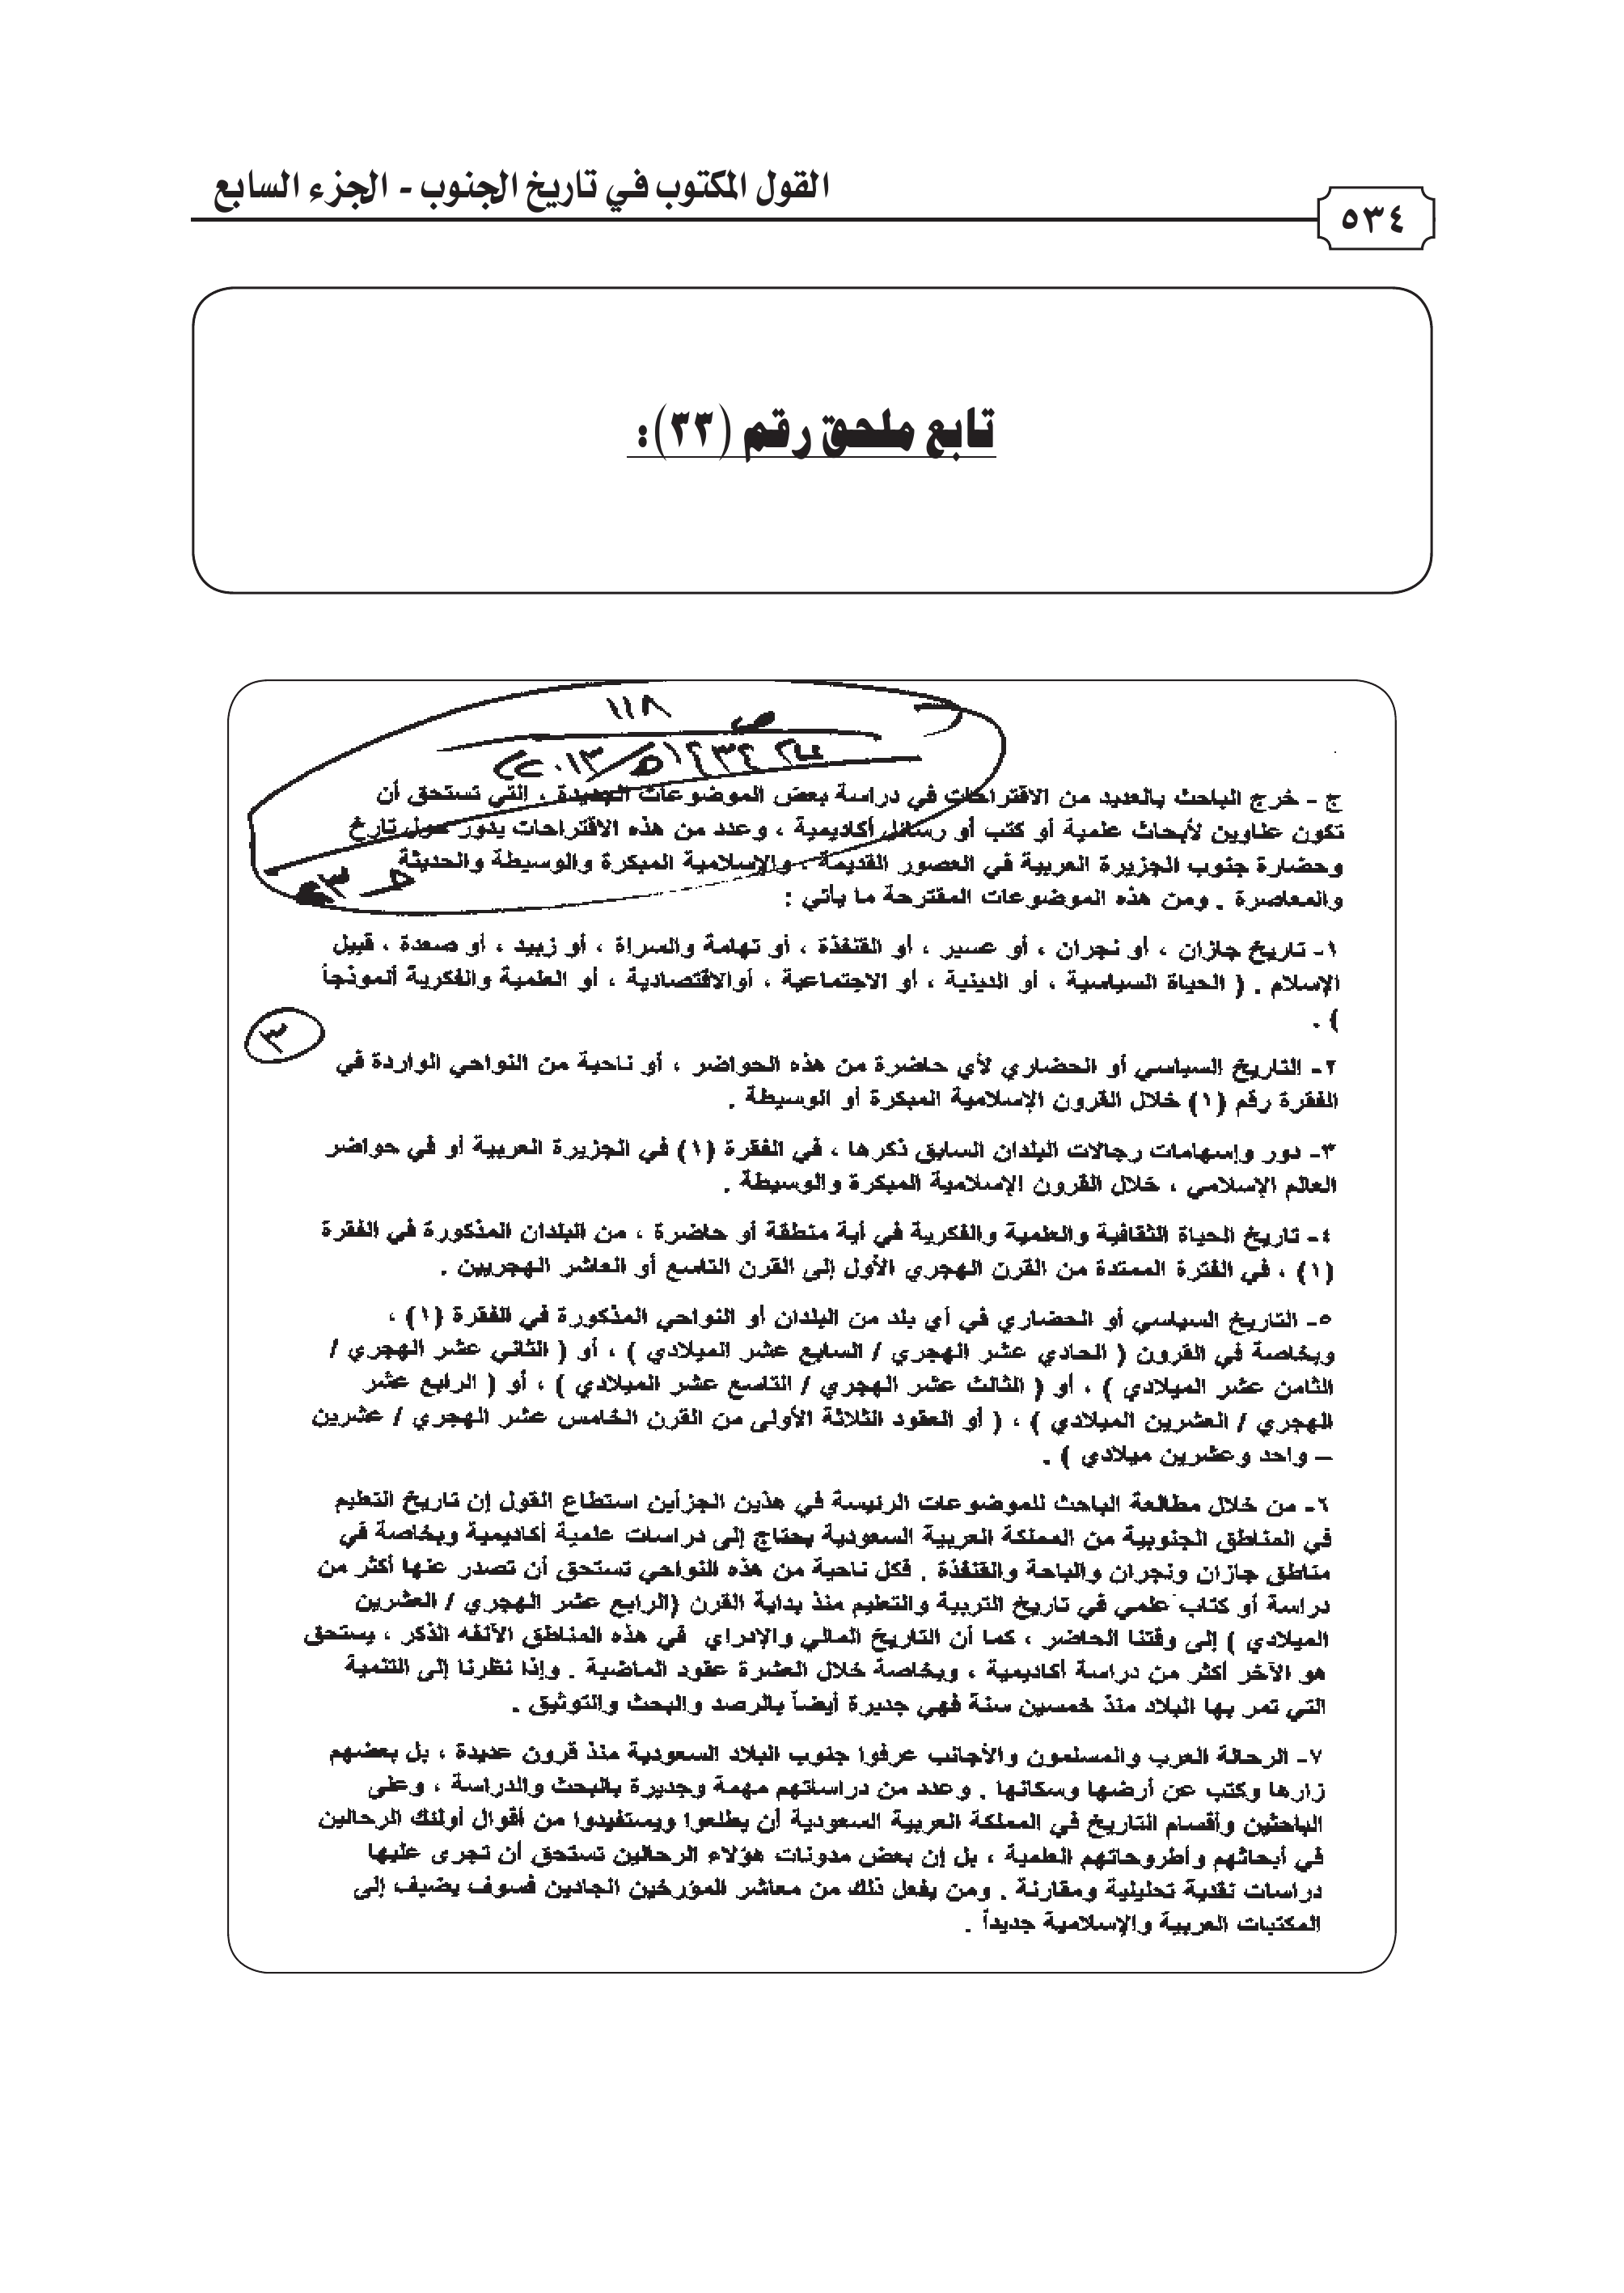 القول المكتوب في تاريخ الجنوب - الجزء السابع
٥٣٤
تابع ملحق رقم (٣٣):
١١٨
ص
١٤٣٤هـ/٢٠١٣
ج - خرج الباحث بالعديد من الاقتراحات في دراسة بعض الموضوعات الجديدة ، التي تستحق أن
تكون عناوين لأبحاث علمية أو كتب أو رسائل أكاديمية ، وعدد من هذه الاقتراحات يدور حول تارخ
وحضارة جنوب الجزيرة العربية في العصور القديمة ، والإسلامية المبكرة والوسيطة والحديثة
والمعاصرة . ومن هذه الموضوعات المقترحة ما يأتي :
١- تاريخ جازان ، أو نجران ، أو عسير ، أو القنفذة ، أو تهامة والسراة ، أو زبيد ، أو صعدة ، قبيل
الإسلام . ( الحياة السياسية ، أو الدينية ، أو الاجتماعية ، أوالاقتصادية ، أو العلمية والفكرية أنموذجاً
) .
٣
٢- التاريخ السياسي أو الحضاري لأي حاضرة من هذه الحواضر ، أو ناحية من النواحي الواردة في
الفقرة رقم (١) خلال القرون الإسلامية المبكرة أو الوسيطة .
٣- دور وإسهامات رجالات البلدان السابق ذكرها ، في الفقرة (١) في الجزيرة العربية أو في حواضر
العالم الإسلامي ، خلال القرون الإسلامية المبكرة والوسيطة .
٤- تاريخ الحياة الثقافية والعلمية والفكرية في أية منطقة أو حاضرة ، من البلدان المذكورة في الفقرة
(١) ، في الفترة الممتدة من القرن الهجري الأول إلى القرن التاسع أو العاشر الهجريين .
٥- التاريخ السياسي أو الحضاري في أي بلد من البلدان أو النواحي المذكورة في الفقرة (١) ،
وبخاصة في القرون ( الحادي عشر الهجري / السابع عشر الميلادي ) ، أو ( الثاني عشر الهجري /
الثامن عشر الميلادي ) ، أو ( الثالث عشر الهجري / التاسع عشر الميلادي ) ، أو ( الرابع عشر
الهجري / العشرين الميلادي ) ، ( أو العقود الثلاثة الأولى من القرن الخامس عشر الهجري / عشرين
– واحد وعشرين ميلادي ) .
٦- من خلال مطالعة الباحث للموضوعات الرئيسة في هذين الجزأين استطاع القول إن تاريخ التعليم
في المناطق الجنوبية من المملكة العربية السعودية يحتاج إلى دراسات علمية أكاديمية وبخاصة في
مناطق جازان ونجران والباحة والقنفذة . فكل ناحية من هذه النواحي تستحق أن تصدر عنها أكثر من
دراسة أو كتاب علمي في تاريخ التربية والتعليم منذ بداية القرن (الرابع عشر الهجري / العشرين
الميلادي ) إلى وقتنا الحاضر ، كما أن التاريخ المالي والإدراي في هذه المناطق الآنفه الذكر ، يستحق
هو الآخر أكثر من دراسة أكاديمية ، وبخاصة خلال العشرة عقود الماضية . وإذا نظرنا إلى التنمية
التي تمر بها البلاد منذ خمسين سنة فهي جديرة أيضاً بالرصد والبحث والتوثيق .
٧- الرحالة العرب والمسلمون والأجانب عرفوا جنوب البلاد السعودية منذ قرون عديدة ، بل بعضهم
زارها وكتب عن أرضها وسكانها . وعدد من دراساتهم مهمة وجديرة بالبحث والدراسة ، وعلى
الباحثين وأقسام التاريخ في المملكة العربية السعودية أن يطلعوا ويستفيدوا من أقوال أولئك الرحالين
في أبحاثهم وأطروحاتهم العلمية ، بل إن بعض مدونات هؤلاء الرحالين تستحق أن تجرى عليها
دراسات نقدية تحليلية ومقارنة . ومن يفعل ذلك من معاشر المؤرخين الجادين فسوف يضيف إلى
المكتبات العربية والإسلامية جديداً .